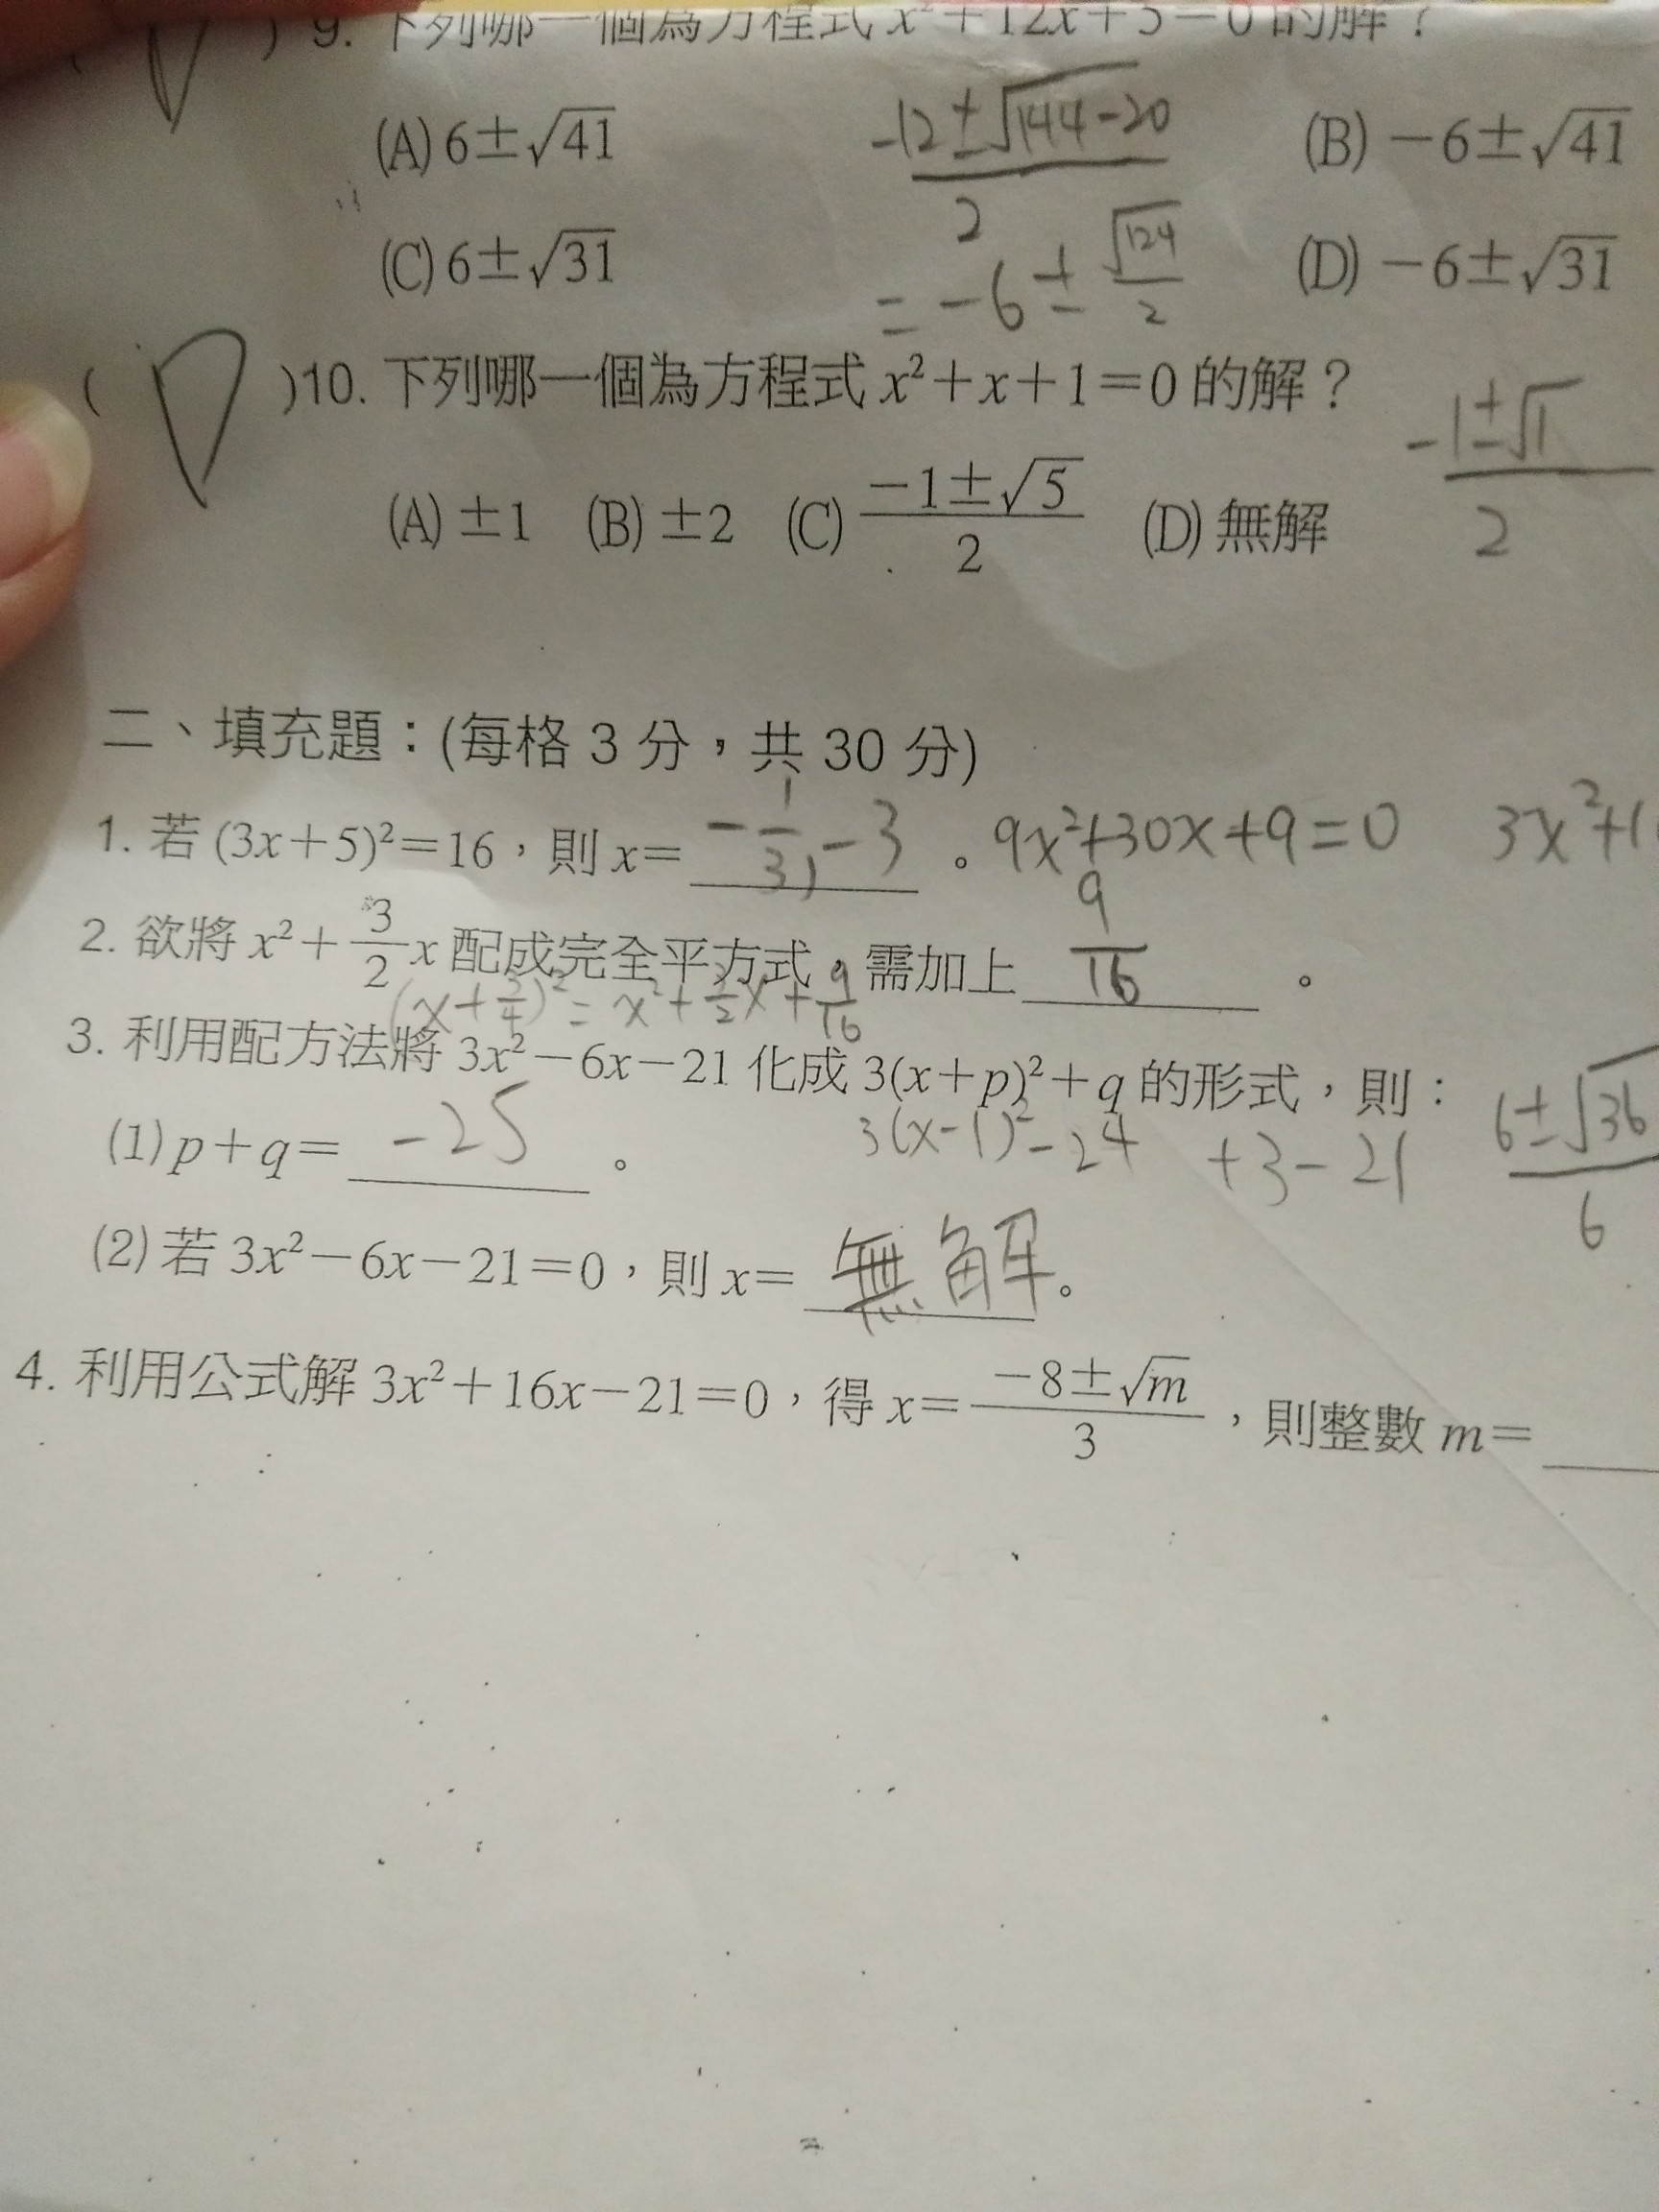 ) 9. 下列哪一個為方程式 x²+12x+5=0 的解？
(A) 6±√41
-12±√144-20
2
(B) -6±√41
(C) 6±√31
= -6 ± √124
2
(D) -6±√31
( D )10. 下列哪一個為方程式 x²+x+1=0 的解？
-1±√1
2
(A) ±1 (B) ±2 (C) -1±√5/2 (D) 無解
二、填充題：(每格 3 分，共 30 分)
1. 若 (3x+5)²=16，則 x= -1/3, -3 。 9x²+30x+9=0 3x²+1
2. 欲將 x²+3/2x 配成完全平方式，需加上 9/16 。
(x+3/4)²=x²+3/2x+9/16
3. 利用配方法將 3x²-6x-21 化成 3(x+p)²+q 的形式，則：
3(x-1)²-24 +3-21
6±√36
6
(1) p+q= -25 。
(2) 若 3x²-6x-21=0，則 x= 無解。
4. 利用公式解 3x²+16x-21=0，得 x= -8±√m/3，則整數 m=